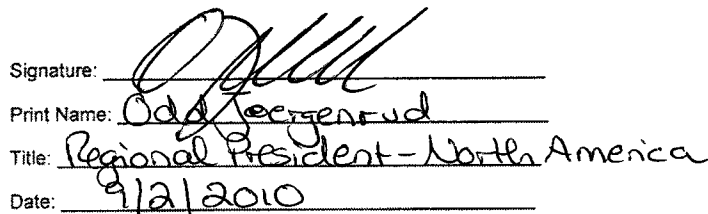 Signature:
Print Name: Odd Joergenrud
Title: Regional President - North America
Date: 9/2/2010